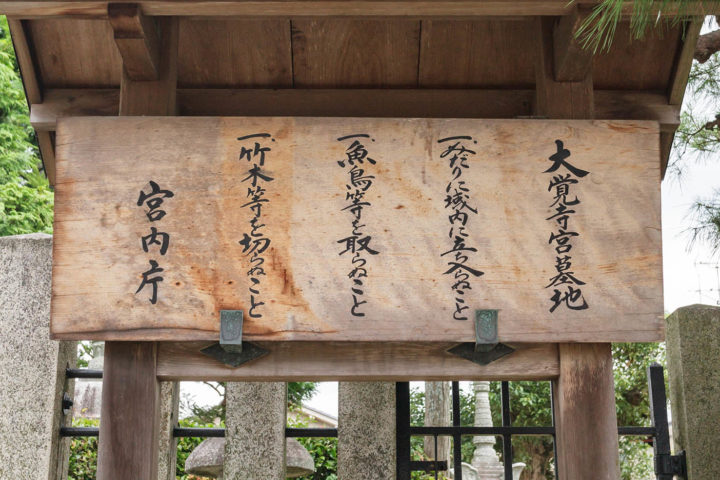 大覚寺宮墓地
一、みだりに域内に立ち入らぬこと
一、魚鳥等を取らぬこと
一、竹木等を切らぬこと
宮内庁